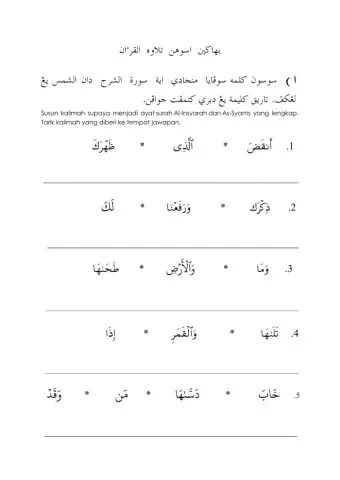 بهاڬين اسوهن تلاوه القرءان
أ ) سوسون کلمه سوڤايا منجادي اية سورة الشرح دان الشمس يڠ
لڠکڤ. تاريق کليمة يڠ دبري کتمڤت جواڤن.
Susun kalimah supaya menjadi ayat surah Al-Insyarah dan As-Syams yang lengkap.
Tarik kalimah yang diberi ke tempat jawapan.
1. أَنقَضَ * ٱلَّذِى * ظَهْرَكَ
2. ذِكْرَكَ * وَرَفَعْنَا * لَكَ
3. وَمَا * وَٱلْأَرْضِ * طَحَىٰهَا
4. تَلَىٰهَا * وَٱلْقَمَرِ * إِذَا
5. خَابَ * دَسَّىٰهَا * مَن * وَقَدْ